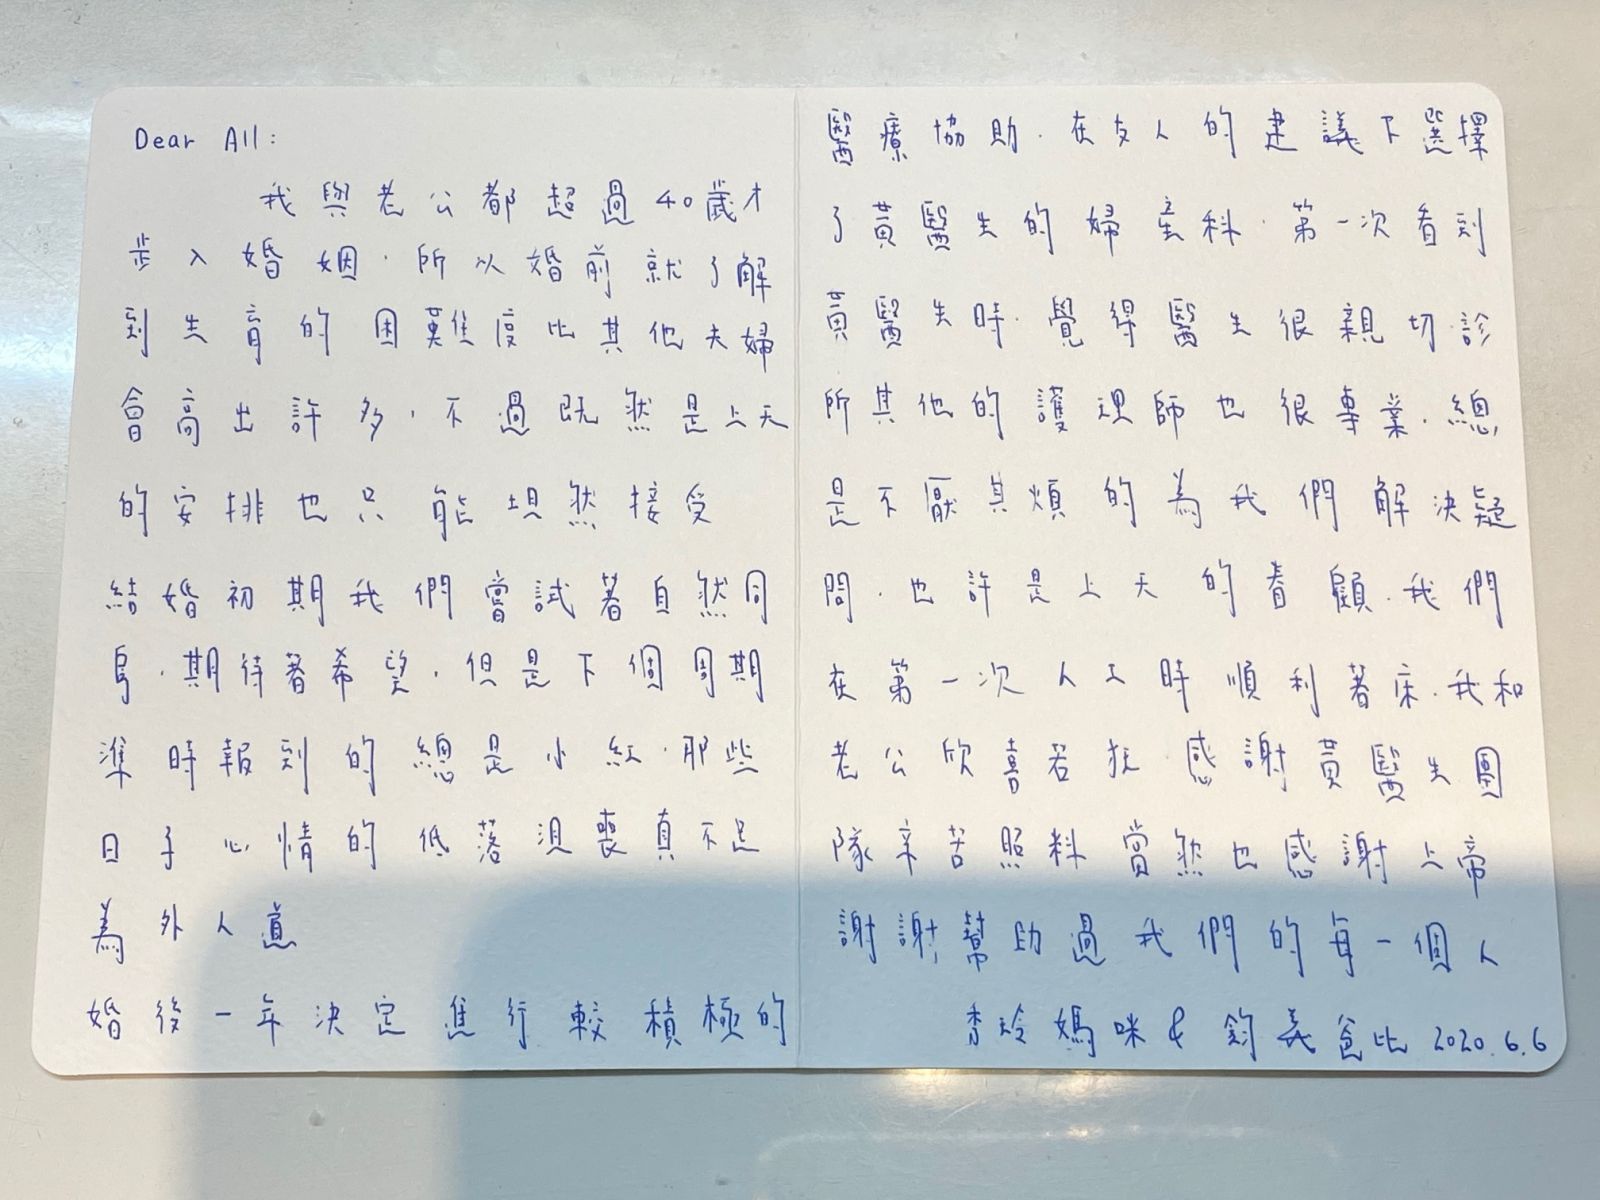 Dear All:
我與老公都超過40歲才
步入婚姻.所以婚前就了解
到生育的困難度比其他夫婦
會高出許多,不過既然是上天
的安排也只能坦然接受
結婚初期我們嘗試著自然同
房.期待著希望.但是下個周期
準時報到的總是小紅.那些
日子心情的低落沮喪真不足
為外人道
婚後一年決定進行較積極的
醫療協助.在友人的建議下選擇
了黃醫生的婦產科.第一次看到
黃醫生時.覺得醫生很親切.診
所其他的護理師也很專業.總
是不厭其煩的為我們解決疑
問.也許是上天的眷顧.我們
在第一次人工時順利著床.我和
老公欣喜若狂.感謝黃醫生團
隊辛苦照料當然也感謝上帝
謝謝幫助過我們的每一個人
玲媽咪&鈞義爸比 2020.6.6